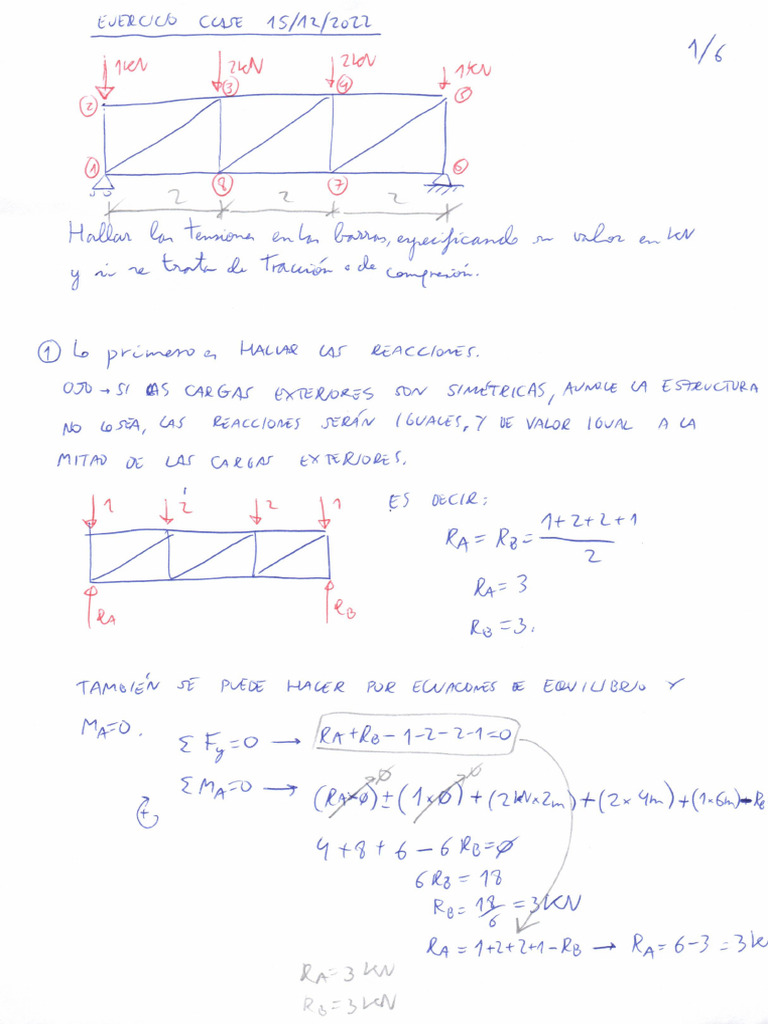 EJERCICIO CLASE 15/12/2022
1/6
1kN 2kN 2kN 1kN
2 3 4 5
1 8 7 6
2 2 2
Hallar las tensiones en las barras, especificando su valor en kN
y si se trata de Tracción o de compresión.
① Lo primero es HALLAR LAS REACCIONES.
OJO → SI LAS CARGAS EXTERIORES SON SIMÉTRICAS, AUNQUE LA ESTRUCTURA
NO LO SEA, LAS REACCIONES SERÁN IGUALES, Y DE VALOR IGUAL A LA
MITAD DE LAS CARGAS EXTERIORES.
1 2 2 1
RA RB
ES DECIR:
RA = RB = (1+2+2+1)/2
RA = 3
RB = 3.
TAMBIÉN SE PUEDE HACER POR ECUACIONES DE EQUILIBRIO Y
MA=0.
Σ Fy = 0 → RA + RB - 1 - 2 - 2 - 1 = 0
Σ MA = 0 → (RA×0) ± (1×0) + (2kN×2m) + (2×4m) + (1×6m) - RB
+
4 + 8 + 6 - 6 RB = 0
6 RB = 18
RB = 18/6 = 3kN
RA = 1+2+2+1 - RB → RA = 6-3 = 3k
RA = 3 kN
RB = 3 kN